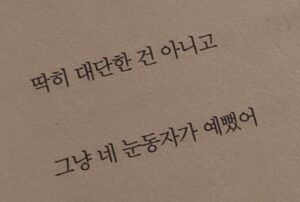 딱히 대단한 건 아니고
그냥 네 눈동자가 예뻤어